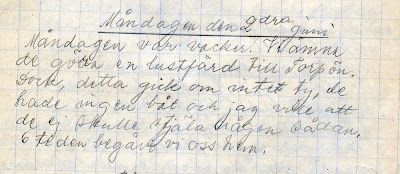 Måndagen den 2dra juni
Måndagen var vacker. Vi ämna
de göra en lustfärd till Torpön.
Dock, detta gick om intet ty, de
hade ingen båt och jag ville att
de ej skulle stjäla någon sådan.
6 tiden begåvo vi oss hem.